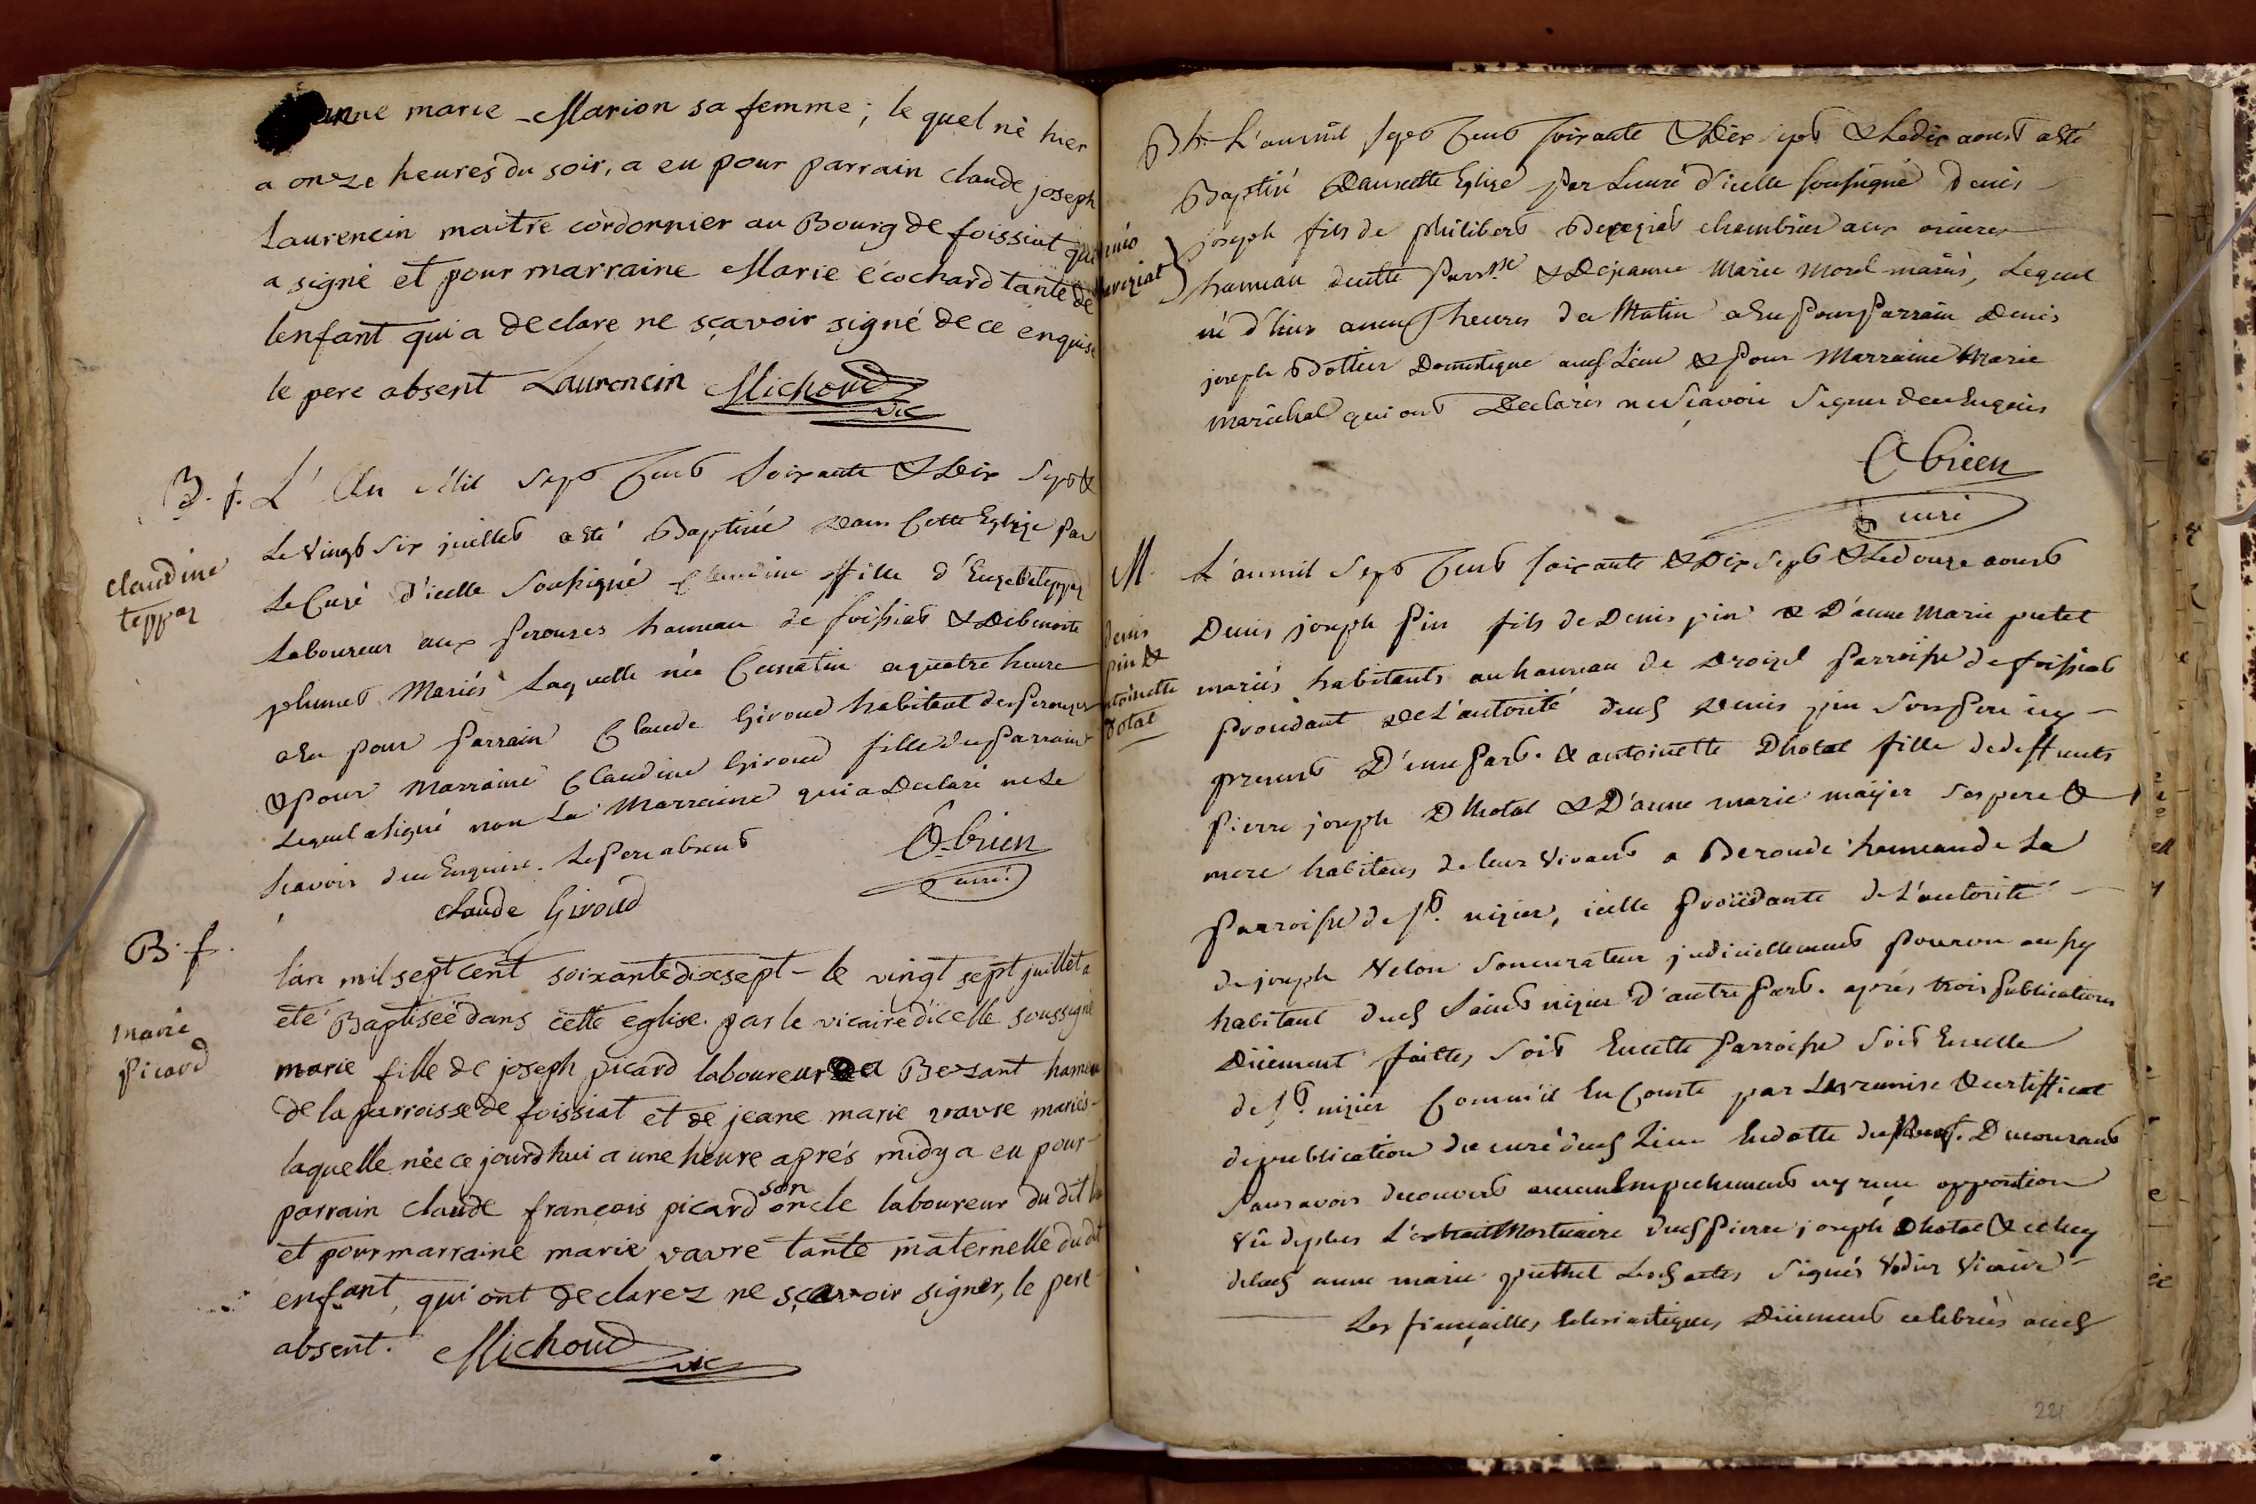 anne marie Marion sa femme; le quel né hier
a onze heures du soir, a eu pour parrain claude joseph
Laurencin maitre cordonnier au Bourg de foissiat qui
a signé et pour marraine Marie écochard tante de
lenfant qui a declare ne sçavoir signé de ce enquise
le pere absent Laurencin Michoud
vic
B. f. L'An Mil sept Cent soixante & Dix Sept &
Le vingt six juillet a été Baptisée dans Cette Eglize par
claudine
teppaz
Le Curé d'icelle soussigné Claudine fille d'
Laboureur aux perouzes hameau de foissiat & De benoite
plumet Mariés Laquelle née Ce matin a quatre heure
a Eu pour parrain Claude Giroud habitant des perouzes
& pour Marraine Claudine Giroud fille du parrain
Lequel a signé non La Marraine qui a Declaré ne Le
scavoir de ce Enquise. Le pere absent
claude Giroud
Obrien
curé
B. f.
marie
picard
lan mil sept cent soixante dix sept - le vingt sept juillet a
eté Baptiseé dans cette eglise par le vicaire d'icelle soussigné
marie fille de joseph picard laboureur a Bezant hameau
de la parroisse de foissiat et de jeane marie vavre mariés-
laquelle née ce jourd'hui a une heure aprés midy a eu pour-
parrain claude françois picard son oncle laboureur du dit
et pour marraine marie vavre tante maternelle du dit
enfant, qui ont declarez ne sçavoir signer, le pere
absent. Michoud
vic
L'an mil sept Cent soixante & Dix sept & Le dix aoust a été
Baptisé Dans cette Eglize par Le curé d'icelle soussigné denis
joseph fils de philibert
hameau de cette parsse & De jeanne Marie Morel mariés, Lequel
né d'hier a neuf heures du Matin a Eu pour parrain Denis
joseph Domestique aud Lieu & pour Marraine Marie
maréchal qui ont Declarés ne sçavoir signer de ce Enquis
Obrien
curé
M.
denis
pin &
antoinette
dotal
L'an mil sept Cent soixante & Dix sept & Le douze aoust
Denis joseph pin fils de Denis pin & D'anne Marie putet
mariés habitants au hameau de parroisse de foissiat
procédant de L'autorité dud Denis pin son pere icy
present D'une part. & antoinette Dhotal fille de deffunts
pierre joseph Dhotal & D'anne marie ses pere &
mere habitans de leur vivant a Beroude hameau de La
parroisse de st. nizier, icelle procédante de L'autorité
de joseph Velon son curateur judiciellement pourvu aussy
habitant dud saint nizier D'autre part. aprés trois publications
Düement faittes soit En cette parroisse soit En celle
de st. nizier Comm'il En Conste par La remise Du certifficat
de publication du curé dud Lieu En datte du Du courant
sans avoir decouvert aucun Empechement ny reçu opposition
vû de plus L'extrait Mortuaire dud pierre joseph Dhotal & celuy
de lad anne marie Lesd actes signés vicaire
Les fiançailles Eclesiastiques Düement celebrées aud
221